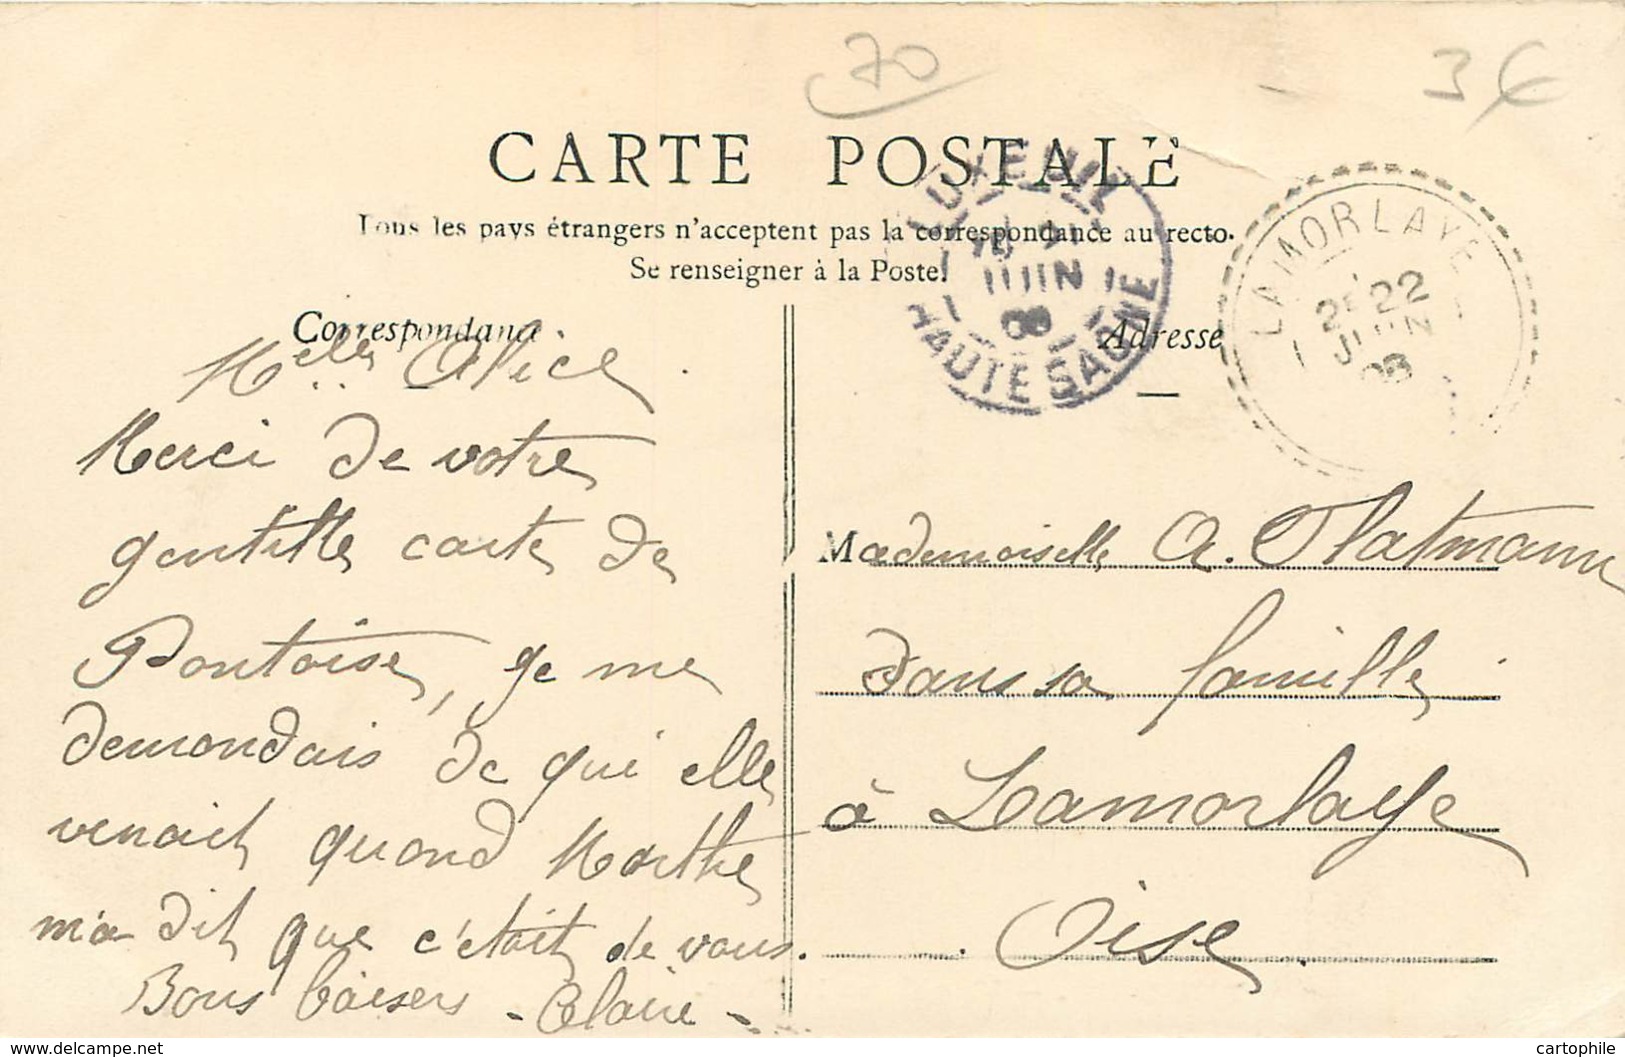 70
3€
CARTE POSTALE
Tous les pays étrangers n'acceptent pas la correspondance au recto.
Se renseigner à la Poste.
LUXEUIL
JUIN
08
HAUTE SAONE
LAMORLAYE
22
JUIN
08
Correspondance
Melle Alice
Merci de votre
gentille carte de
Pontoise, je me
demandais de qui elle
venait quand Marthe
m'a dit que c'était de vous.
Bons baisers - Claire -
Adresse
Mademoiselle A. Flatmann
dans sa famille
à Lamorlaye
Oise.
www.delcampe.net
cartophile